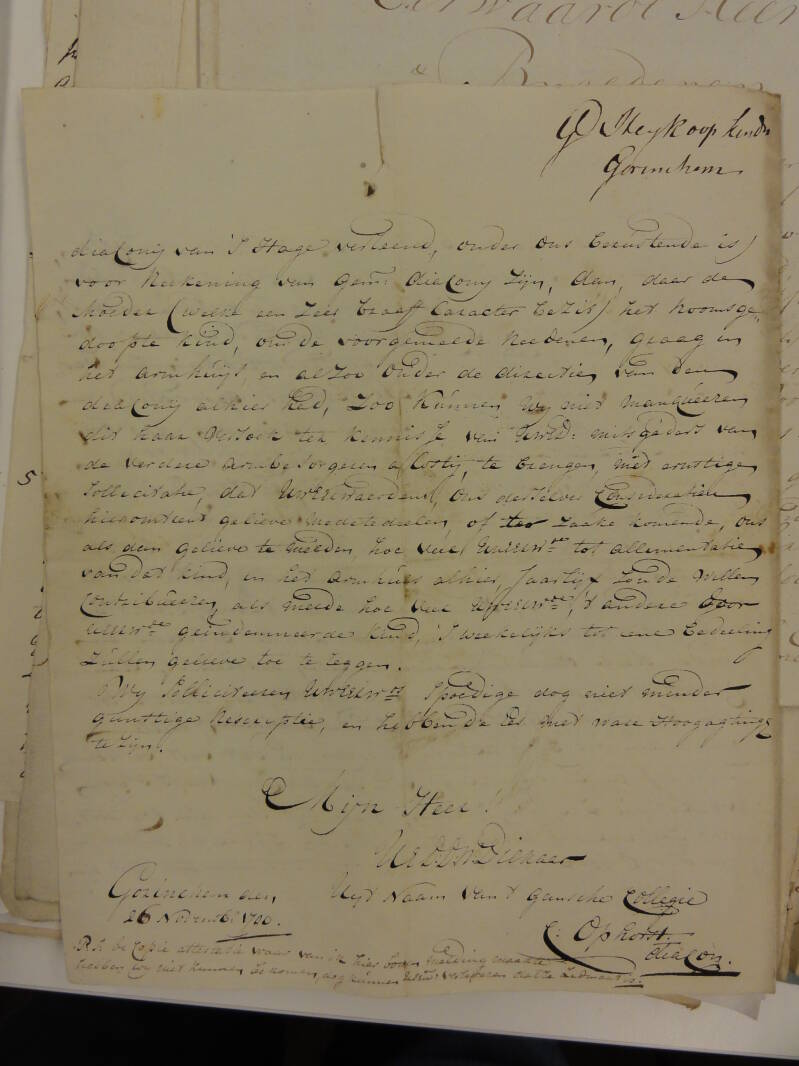 Eerwaarde Heer
Broederen
G Heykoop kinds
Gorinchem
diaconij van 's Hage verleend, onder ons berustende is)
voor Reekening van gem: diaconij zijn, dan, daar de
Moeder (welke een zeer braaf Caracter bezit) het Roomsge-
doopte kind, om de voorgemelde Reedenen, graag in
het armhuijs en alzoo onder de directie van den
diaconij alhier had, zoo kunnen wij niet manqueeren
dit haar versoek ter kennisse van UwEd: mitsgaders van
de verdere armbesorgeren a Costij, te brengen, met ernstige
sollicitatie, dat UwEerwaerdens, ons deszelver Consideratien
hieromtrent gelieve medetedeelen, of ter zaake komende, ons
als dan gelieve te melden, hoe veel tot allimentatie
van dat kind, in het armhuis alhier, Jaarlijx zoude willen
Contribueeren, als meede hoe veel 't andere door
geindemneerde kind, 's weekelijks tot eene bedeeling
zullen gelieve toe te leggen.
Wij solliciteeren spoedige dog niet minder
gunstige Rescriptie, en hebbende de Eer met ware Hoogagting
te zijn.
Mijn Heer!
UEDW Dienaer
Gorinchem den
Uijt Naam van 't gansche Collegie
26 November 1790.
C: Ophorst.
diacon.
P.S. de Copie attestatie waar van ik hier boven melding maakte
hebben wij niet kunnen bekomen, dog kunnen verseekeren dat ze Lidmaat is.
5